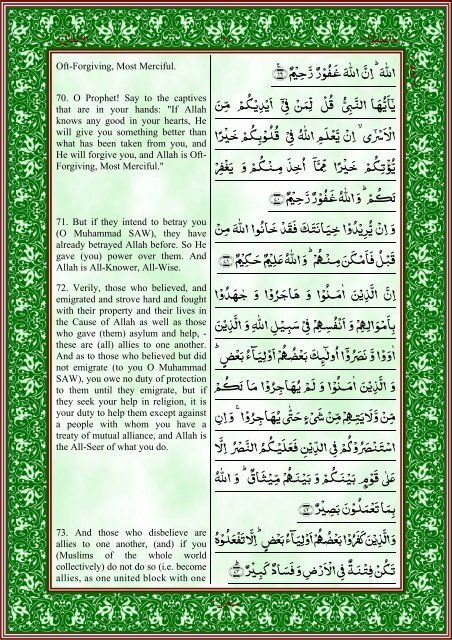 Oft-Forgiving, Most Merciful.
70. O Prophet! Say to the captives
that are in your hands: "If Allah
knows any good in your hearts, He
will give you something better than
what has been taken from you, and
He will forgive you, and Allah is Oft-
Forgiving, Most Merciful."
71. But if they intend to betray you
(O Muhammad SAW), they have
already betrayed Allah before. So He
gave (you) power over them. And
Allah is All-Knower, All-Wise.
72. Verily, those who believed, and
emigrated and strove hard and fought
with their property and their lives in
the Cause of Allah as well as those
who gave (them) asylum and help, -
these are (all) allies to one another.
And as to those who believed but did
not emigrate (to you O Muhammad
SAW), you owe no duty of protection
to them until they emigrate, but if
they seek your help in religion, it is
your duty to help them except against
a people with whom you have a
treaty of mutual alliance, and Allah is
the All-Seer of what you do.
73. And those who disbelieve are
allies to one another, (and) if you
(Muslims of the whole world
collectively) do not do so (i.e. become
allies, as one united block with one
اللّٰهَ ؕ اِنَّ اللّٰهَ غَفُوْرٌ رَّحِيْمٌ
يٰۤاَيُّهَا النَّبِىُّ قُلْ لِّمَنْ فِىْۤ اَيْدِيْكُمْ مِّنَ
الْاَسْرٰٓى ۙ اِنْ يَّعْلَمِ اللّٰهُ فِىْ قُلُوْبِكُمْ خَيْرًا
يُّؤْتِكُمْ خَيْرًا مِّمَّاۤ اُخِذَ مِنْكُمْ وَ يَغْفِرْ
لَكُمْ ؕ وَاللّٰهُ غَفُوْرٌ رَّحِيْمٌ
وَ اِنْ يُّرِيْدُوْا خِيَانَتَكَ فَقَدْ خَانُوا اللّٰهَ مِنْ
قَبْلُ فَاَمْكَنَ مِنْهُمْ ؕ وَاللّٰهُ عَلِيْمٌ حَكِيْمٌ
اِنَّ الَّذِيْنَ اٰمَنُوْا وَ هَاجَرُوْا وَ جٰهَدُوْا
بِاَمْوَالِهِمْ وَ اَنْفُسِهِمْ فِىْ سَبِيْلِ اللّٰهِ وَ الَّذِيْنَ
اٰوَوْا وَّ نَصَرُوْۤا اُولٰٓئِكَ بَعْضُهُمْ اَوْلِيَآءُ بَعْضٍ ؕ
وَ الَّذِيْنَ اٰمَنُوْا وَ لَمْ يُهَاجِرُوْا مَا لَكُمْ
مِّنْ وَّلَايَتِهِمْ مِّنْ شَىْءٍ حَتّٰى يُهَاجِرُوْا ۚ وَ اِنِ
اسْتَنْصَرُوْكُمْ فِى الدِّيْنِ فَعَلَيْكُمُ النَّصْرُ اِلَّا
عَلٰى قَوْمٍۭ بَيْنَكُمْ وَ بَيْنَهُمْ مِّيْثَاقٌ ؕ وَ اللّٰهُ
بِمَا تَعْمَلُوْنَ بَصِيْرٌ
وَالَّذِيْنَ كَفَرُوْا بَعْضُهُمْ اَوْلِيَآءُ بَعْضٍ ؕ اِلَّا تَفْعَلُوْهُ
تَكُنْ فِتْنَةٌ فِى الْاَرْضِ وَ فَسَادٌ كَبِيْرٌ